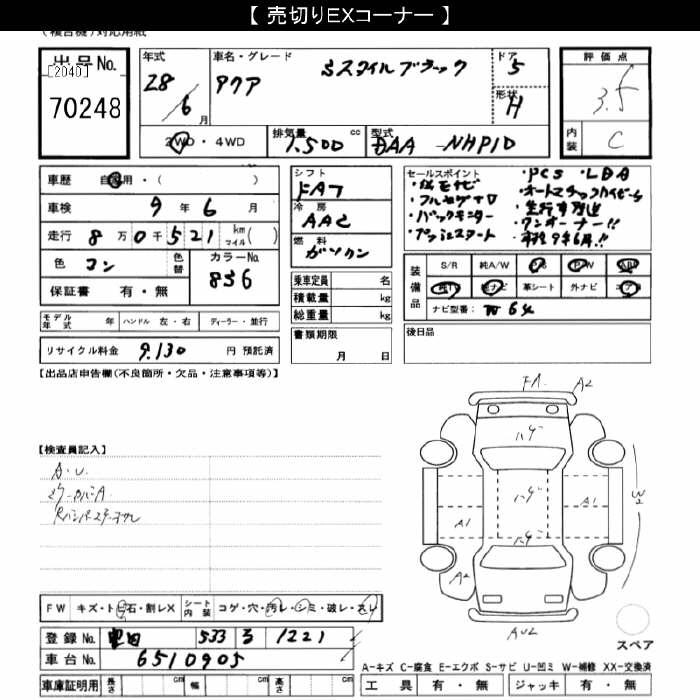 【 売切りEXコーナー 】
(複合機)対応用紙
出品No.
[2040]
70248
年式
28
6
月
車名・グレード
アクア
Sスタイルブラック
ドア
5
形状
H
2WD ・ 4WD
排気量
1,500
cc
型式
DAA - NHP10
評価点
3.5
内装
C
車歴 自家用 ・ ( )
車検 9 年 6 月
走行 8 万 0 千 521 km マイル ( )
色 コン
色替
カラーNo.
8S6
保証書 有 ・ 無
シフト
FAT
冷房
AAC
燃料
ガソリン
乗車定員 名
積載量 kg
総重量 kg
セールスポイント
・純正ナビ
・バックモニター
・プッシュスタート
・PCS ・LDA
・オートマチックハイビーム
・ワンオーナー!!
・車検9年6月!!
装備品
S/R 純A/W P/S P/W A/B
純TV 純ナビ 革シート 外ナビ エアB
ナビ型番:
モデル年式 年
ハンドル 左 ・ 右
ディーラー ・ 並行
リサイクル料金 9,130 円 預託済
書類期限
月 日
後日品
【出品店申告欄(不良箇所・欠品・注意事項等)】
【検査員記入】
A・U
Rバンパーステッカー
FA
A2
ハゲ
ハゲ
A1
A1
ハゲ
W2
A2
AU2
スペア
FW キズ・トビ石・割レX
シート内装 コゲ・穴・汚レ・シミ・破レ・スレ
登録No. 豊田 533 る 1221
車台No. 6510905
車庫証明用 長さ cm 幅 cm 高さ cm
A-キズ C-腐食 E-エクボ S-サビ U-凹ミ W-補修 XX-交換済
工具 有 ・ 無 ジャッキ 有 ・ 無